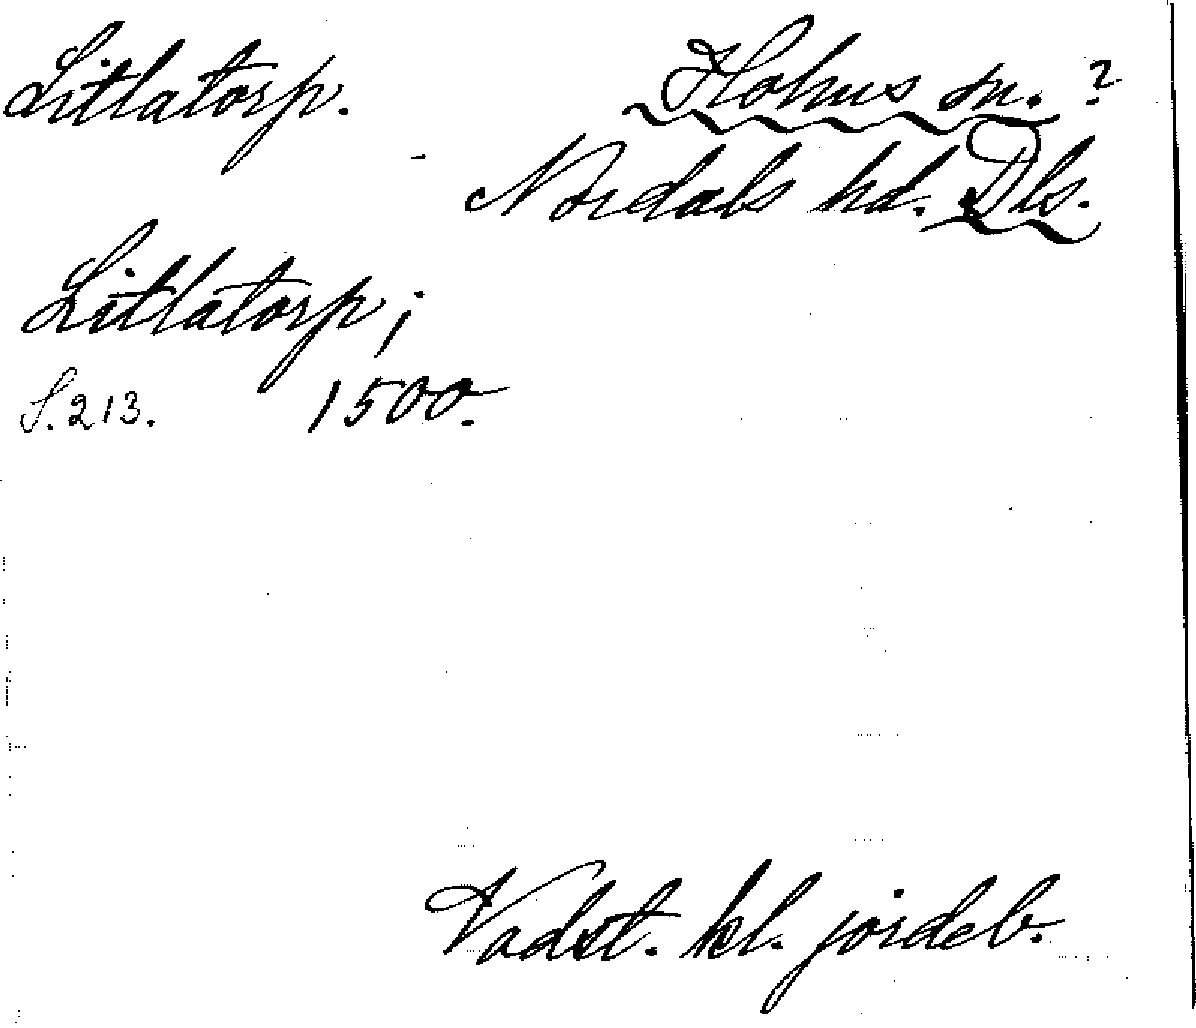 Litlatorp. Holms sn. ?
Nordals hd. Dls.
Litlatorp;
S. 213. 1500.
Vadst. kl. jordeb.